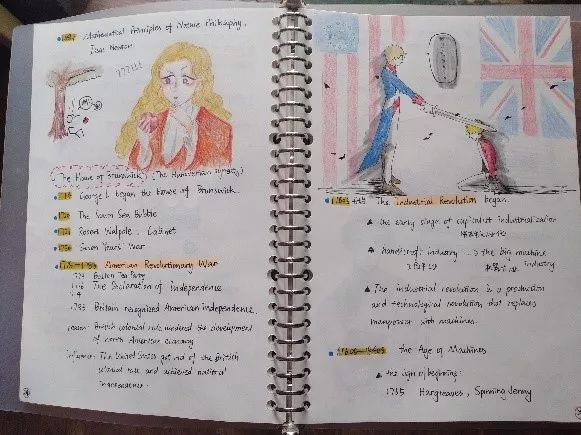 1687 Mathematical Principles of Nature Philosophy.
Isaac Newton
The House of Brunswick (The Hanoverian dynasty)
1714 George I. began the house of Brunswick.
1720 The South Sea Bubble
1721 Robert Walpole. Cabinet
1756 Seven Years' War
American Revolutionary War
1773 Boston Tea Party
1776 The Declaration of Independence
7.4
1783 Britain recognized American independence.
reason: British colonial rule hindered the development
of north American economy
influence: The United States got rid of the British
colonial rule and achieved national
independence.
The Industrial Revolution began.
▲ the early stage of capitalist industrialization
▲ handicraft industry → the big machine
industry
▲ The industrial revolution is a production
and technological revolution that replaces
manpower with machines.
the Age of Machines
▲ the sign of beginning:
1765 Hargreaves, Spinning Jenny